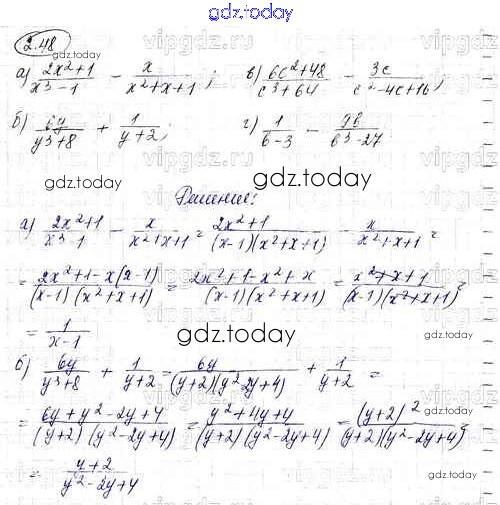 gdz.today
2.48
а) (2x²+1)/(x³-1) - x/(x²+x+1); в) (6c²+48)/(c³+64) - 3c/(c²-4c+16);
б) 6y/(y³+8) + 1/(y+2); г) 1/(b-3) - 9b/(b³-27)
Решение:
а) (2x²+1)/(x³-1) - x/(x²+x+1) = (2x²+1)/((x-1)(x²+x+1)) - x/(x²+x+1) =
= (2x²+1-x(x-1))/((x-1)(x²+x+1)) = (2x²+1-x²+x)/((x-1)(x²+x+1)) = (x²+x+1)/((x-1)(x²+x+1)) =
= 1/(x-1)
gdz.today
б) 6y/(y³+8) + 1/(y+2) = 6y/((y+2)(y²-2y+4)) + 1/(y+2) =
= (6y+y²-2y+4)/((y+2)(y²-2y+4)) = (y²+4y+4)/((y+2)(y²-2y+4)) = (y+2)²/((y+2)(y²-2y+4)) =
= (y+2)/(y²-2y+4)
gdz.today